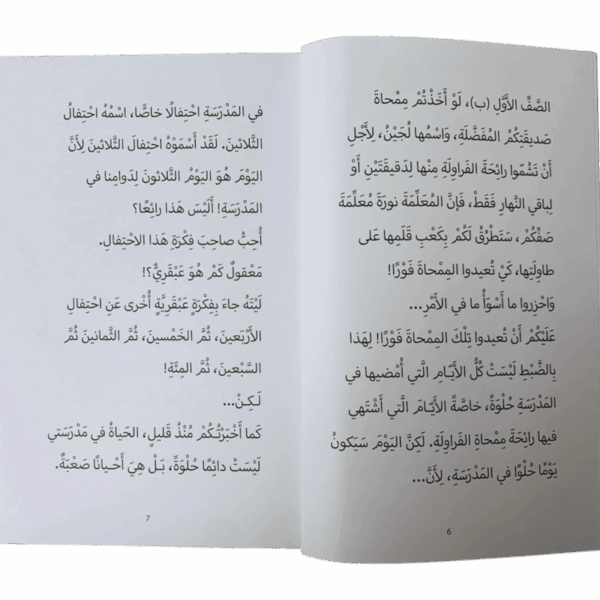 الصَّفِّ الأَوَّلِ (ب)، لَوْ أَخَذْتُمْ مِمْحاةَ
صَديقَتِكُمُ المُفَضَّلَةِ، وَاسْمُها لُجَيْنُ، لِأَجْلِ
أَنْ تَشُمّوا رائِحَةَ الفَراوِلَةِ مِنْها لِدَقيقَتَيْنِ أَوْ
لِباقي النَّهارِ فَقَطْ، فَإِنَّ المُعَلِّمَةَ نورَةَ مُعَلِّمَةَ
صَفِّكُمْ، سَتَطْرُقُ لَكُمْ بِكَعْبِ قَلَمِها عَلى
طاوِلَتِها، كَيْ تُعيدوا المِمْحاةَ فَوْرًا!
وَاحْزِروا ما أَسْوَأُ ما في الأَمْرِ...
عَلَيْكُمْ أَنْ تُعيدوا تِلْكَ المِمْحاةَ فَوْرًا! لِهَذا
بِالضَّبْطِ لَيْسَتْ كُلُّ الأَيّامِ الَّتي أُمْضيها في
المَدْرَسَةِ حُلْوَةً، خاصَّةً الأَيّامَ الَّتي أَشْتَهي
فيها رائِحَةَ مِمْحاةِ الفَراوِلَةِ. لَكِنَّ اليَوْمَ سَيَكونُ
يَوْمًا حُلْوًا في المَدْرَسَةِ، لِأَنَّ...
6
في المَدْرَسَةِ احْتِفالًا خاصًّا، اسْمُهُ احْتِفالُ
الثَّلاثينَ. لَقَدْ أَسْمَوْهُ احْتِفالَ الثَّلاثينَ لِأَنَّ
اليَوْمَ هُوَ اليَوْمُ الثَّلاثونَ لِدَوامِنا في
المَدْرَسَةِ! أَلَيْسَ هَذا رائِعًا؟
أُحِبُّ صاحِبَ فِكْرَةِ هَذا الاحْتِفالِ.
مَعْقولٌ كَمْ هُوَ عَبْقَرِيٌّ؟!
لَيْتَهُ جاءَ بِفِكْرَةٍ عَبْقَرِيَّةٍ أُخْرى عَنِ احْتِفالِ
الأَرْبَعينَ، ثُمَّ الخَمْسينَ، ثُمَّ الثَّمانينَ ثُمَّ
السَّبْعينَ، ثُمَّ المِئَةِ!
لَكِنْ...
كَما أَخْبَرْتُكُمْ مُنْذُ قَليلٍ، الحَياةُ في مَدْرَسَتي
لَيْسَتْ دائِمًا حُلْوَةً، بَلْ هِيَ أَحْيانًا صَعْبَةٌ.
7